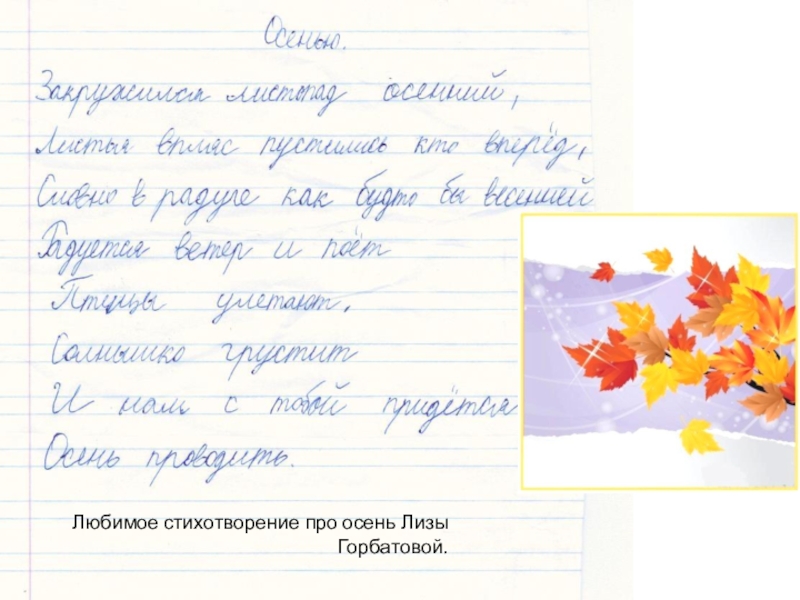 Осенью.
Закружился листопад осенний,
Листья впляс пустились кто вперёд,
Словно в радуге как будто бы весенней
Радуется ветер и поёт
Птицы улетают,
Солнышко грустит
И нам с тобой придётся
Осень проводить.
Любимое стихотворение про осень Лизы
Горбатовой.